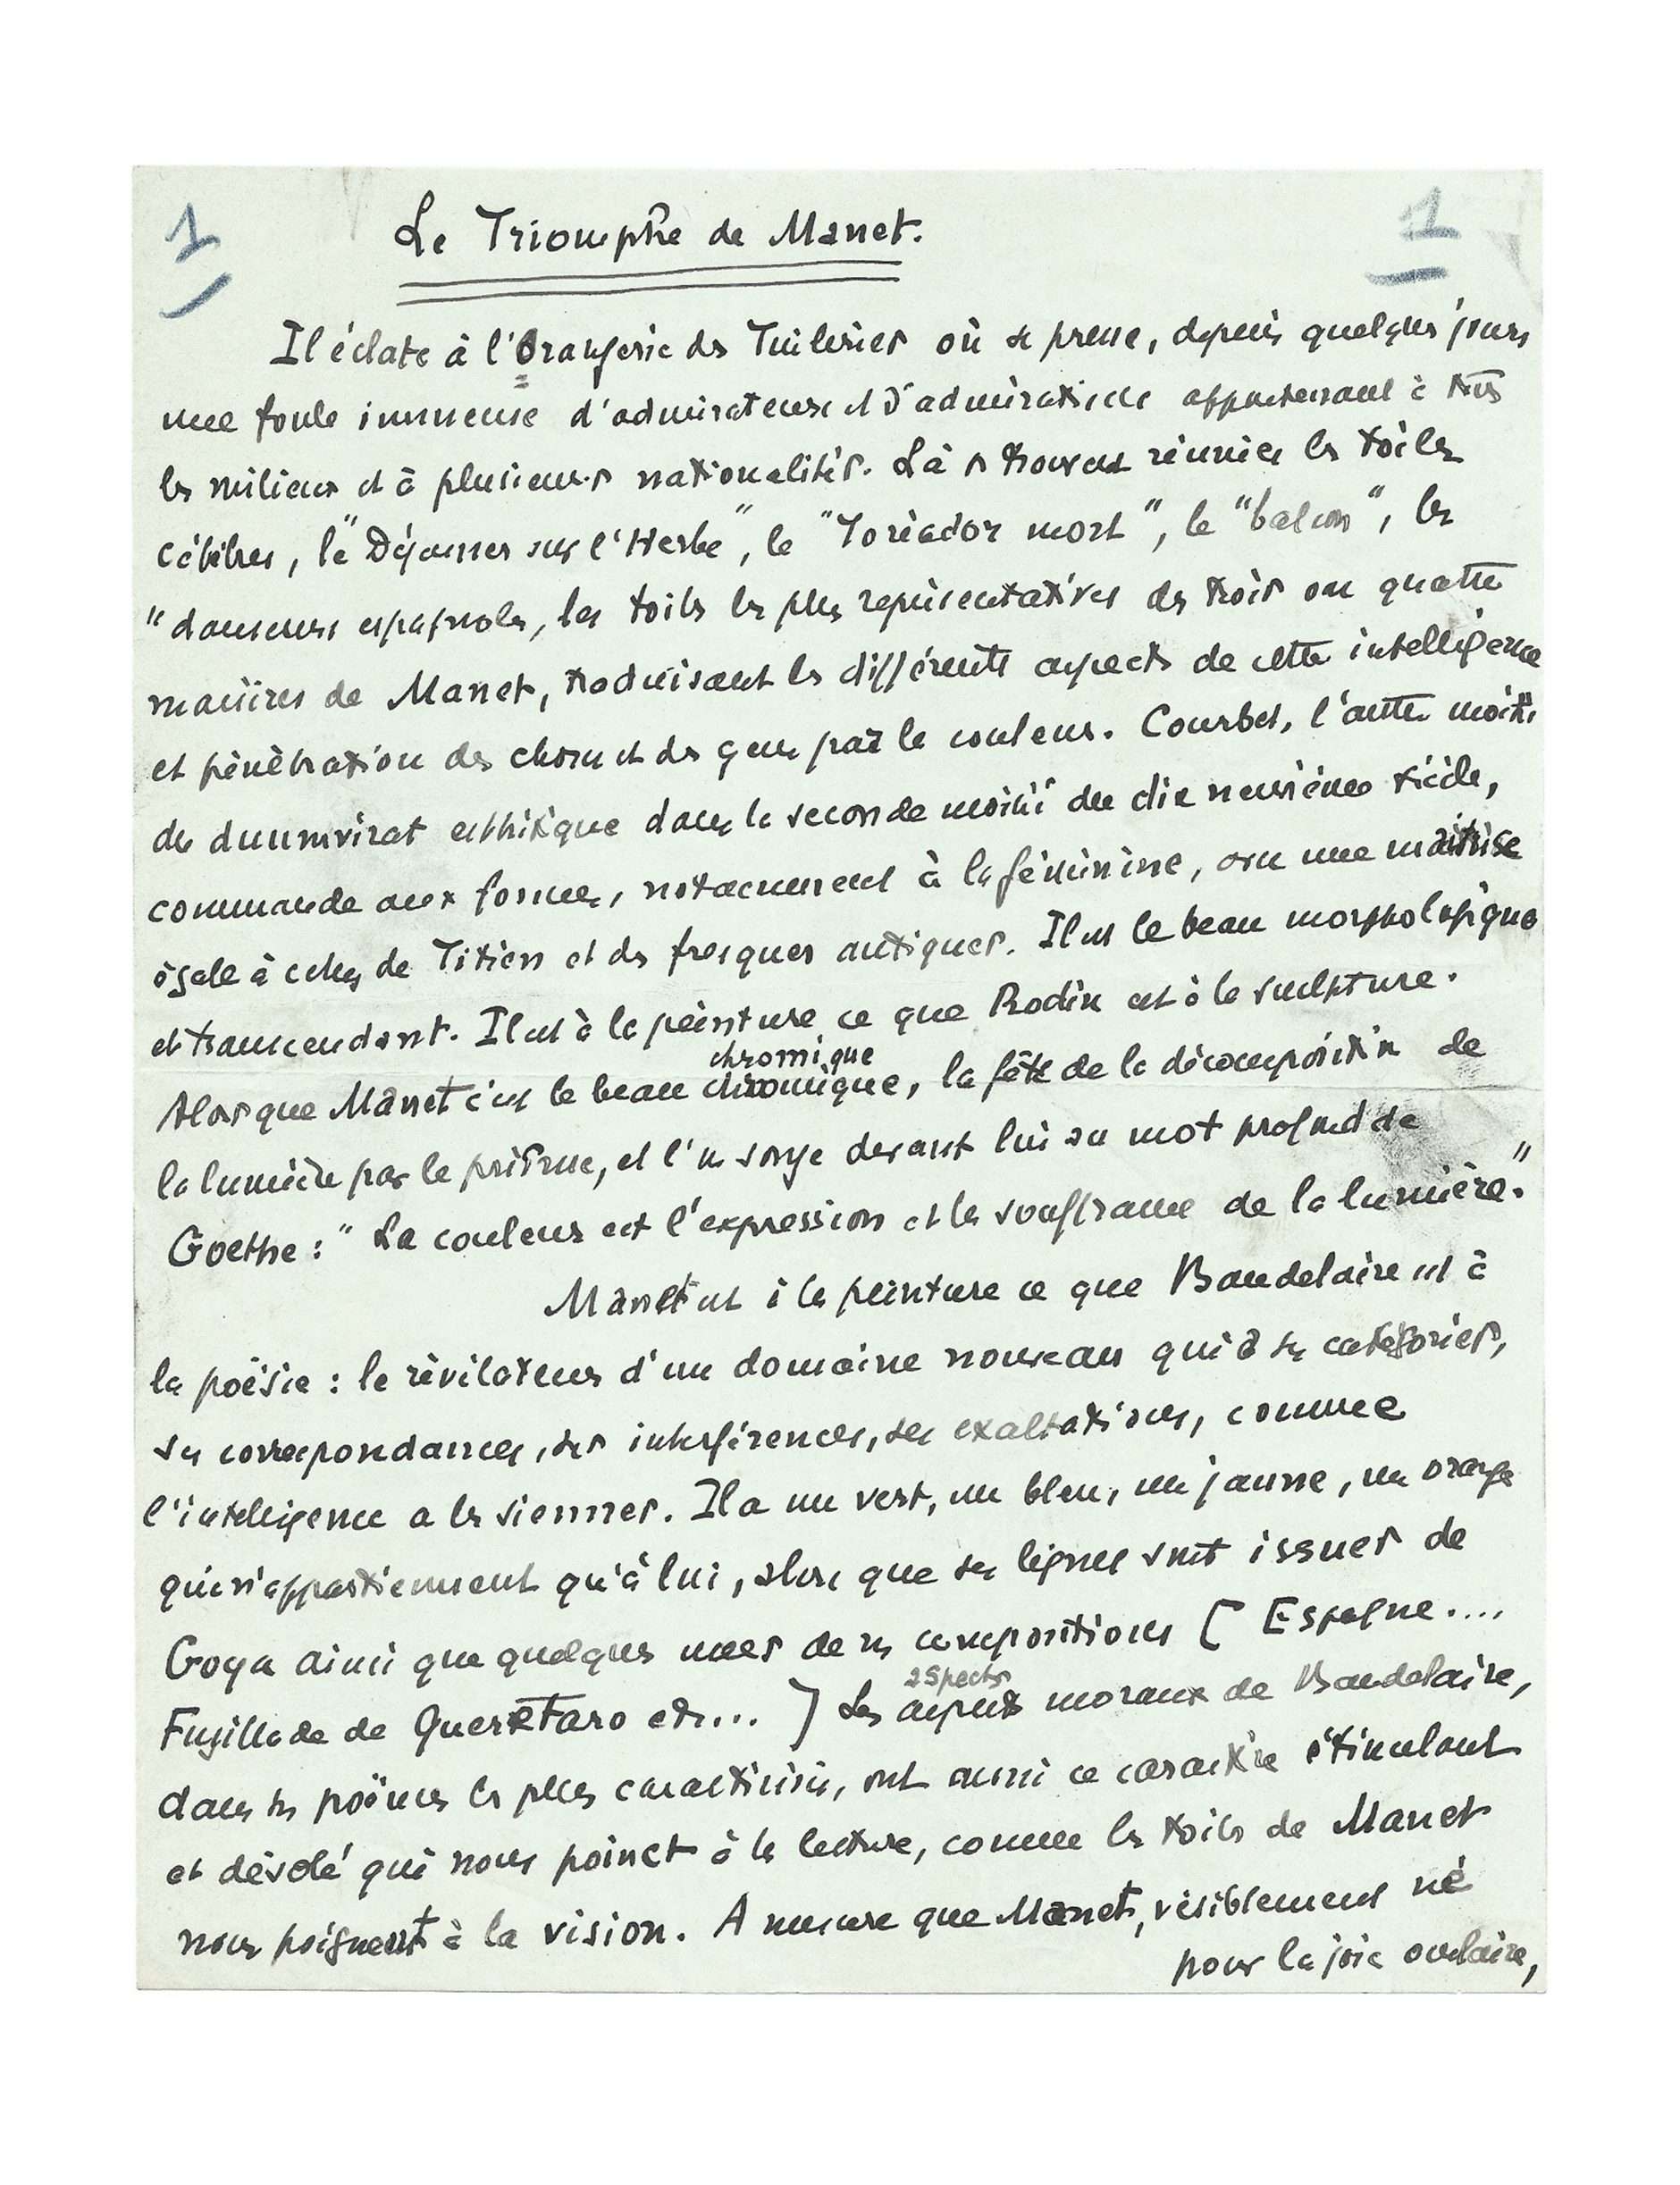 1 Le Triomphe de Manet. 1
Il éclate à l'Orangerie des Tuileries où se presse, depuis quelques jours
une foule immense d'admirateurs et d'admiratrices appartenant à tous
les milieux et à plusieurs nationalités. Là se trouvent réunies les toiles
célèbres, le "Déjeuner sur l'Herbe", le "Toréador mort", le "balcon", les
"danseurs espagnols, les toiles les plus représentatives des trois ou quatre
manières de Manet, traduisant les différents aspects de cette intelligence
et pénétration des choses et des gens par la couleur. Courbet, l'autre moitié
du duumvirat esthétique dans la seconde moitié du dix neuvième siècle,
commande aux formes, notamment à la féminine, avec une maîtrise
égale à celles de Titien et des fresques antiques. Il est le beau morphologique
et transcendant. Il est à la peinture ce que Rodin est à la sculpture.
chromique
Alors que Manet c'est le beau chromique, la fête de la décomposition de
la lumière par le prisme, et l'on songe devant lui au mot profond de
Goethe : "La couleur est l'expression et la souffrance de la lumière."
Manet est à la peinture ce que Baudelaire est à
la poësie : le révélateur d'un domaine nouveau qui a ses catégories,
ses correspondances, ses interférences, ses exaltations, comme
l'intelligence a les siennes. Il a un vert, un bleu, un jaune, un orange
qui n'appartiennent qu'à lui, alors que ses lignes sont issues de
Goya ainsi que quelques unes de ses compositions ( Espagne....
aspects
Fusillade de Queretaro etc... ) Les aspects moraux de Baudelaire,
dans ses poëmes les plus caractérisés, ont aussi ce caractère stimulant
et désolé qui nous poinct à la lecture, comme les toiles de Manet
nous poignent à la vision. A mesure que Manet, visiblement né
pour la joie oculaire,